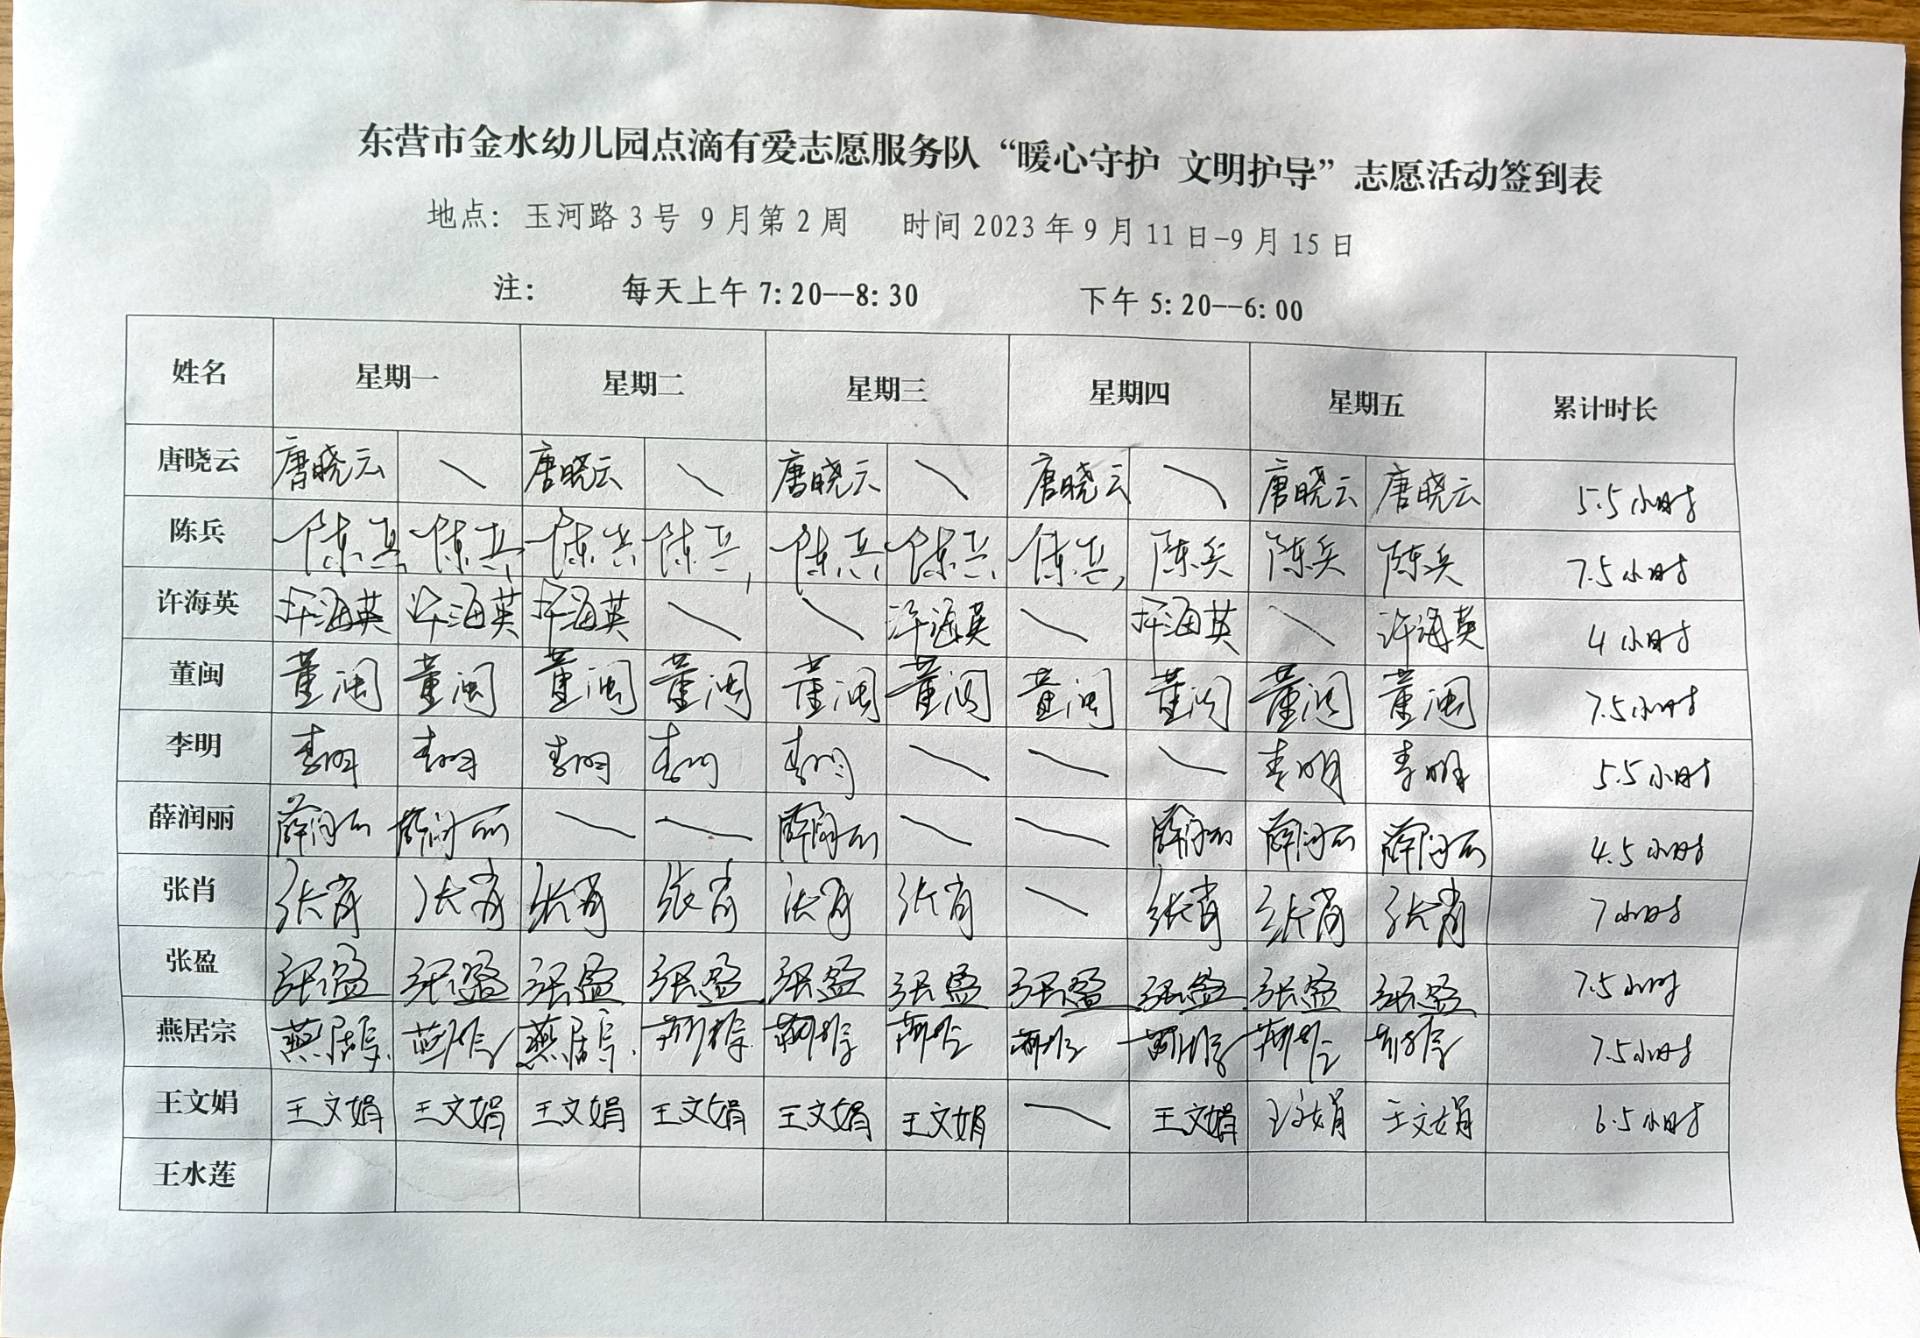 东营市金水幼儿园点滴有爱志愿服务队“暖心守护 文明护导”志愿活动签到表
地点：玉河路3号 9月第2周 时间2023年9月11日-9月15日
注： 每天上午7:20--8:30 下午5:20--6:00
姓名 星期一 星期二 星期三 星期四 星期五 累计时长
唐晓云 唐晓云 \ 唐晓云 \ 唐晓云 \ 唐晓云 \ 唐晓云 唐晓云 5.5小时
陈兵 陈兵 陈兵 陈兵 陈兵 陈兵 陈兵 陈兵 陈兵 陈兵 陈兵 7.5小时
许海英 许海英 许海英 许海英 \ \ 许海英 \ 许海英 \ 许海英 4小时
董闽 董闽 董闽 董闽 董闽 董闽 董闽 董闽 董闽 董闽 董闽 7.5小时
李明 李明 李明 李明 李明 李明 \ \ \ 李明 李明 5.5小时
薛润丽 薛润丽 薛润丽 \ \ 薛润丽 \ \ 薛润丽 薛润丽 薛润丽 4.5小时
张肖 张肖 张肖 张肖 张肖 张肖 张肖 \ 张肖 张肖 张肖 7小时
张盈 张盈 张盈 张盈 张盈 张盈 张盈 张盈 张盈 张盈 张盈 7.5小时
燕居宗 燕居宗 燕居宗 燕居宗 燕居宗 燕居宗 燕居宗 燕居宗 燕居宗 燕居宗 燕居宗 7.5小时
王文娟 王文娟 王文娟 王文娟 王文娟 王文娟 王文娟 \ 王文娟 王文娟 王文娟 6.5小时
王水莲